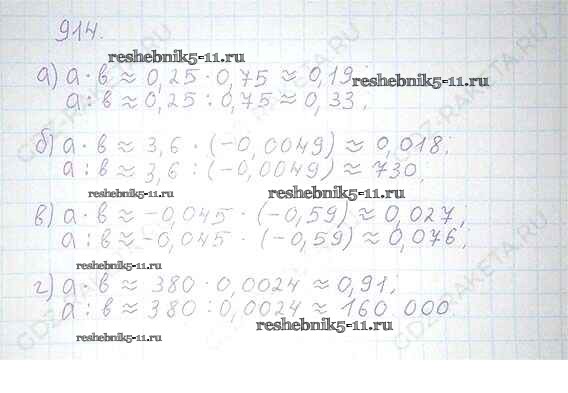 914.
reshebnik5-11.ru
а) а · в ≈ 0,25 · 0,75 ≈ 0,19;
reshebnik5-11.ru
а : в ≈ 0,25 : 0,75 ≈ 0,33;
б) а · в ≈ 3,6 · (-0,0049) ≈ 0,018;
а : в ≈ 3,6 : (-0,0049) ≈ 730;
reshebnik5-11.ru reshebnik5-11.ru
в) а · в ≈ -0,045 · (-0,59) ≈ 0,027;
а : в ≈ -0,045 · (-0,59) ≈ 0,076;
reshebnik5-11.ru
г) а · в ≈ 380 · 0,0024 ≈ 0,91;
а : в ≈ 380 : 0,0024 ≈ 160 000
reshebnik5-11.ru
reshebnik5-11.ru
GDZ-RAKETA.RU
GDZ-RAKETA.RU
GDZ-RAKETA.RU
GDZ-RAKETA.RU